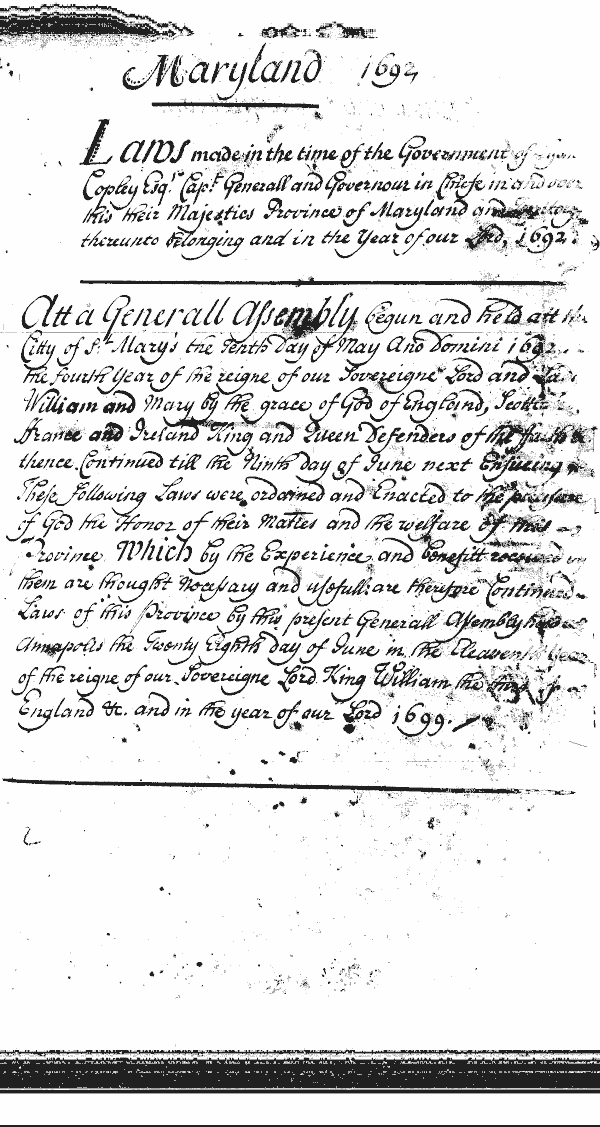 Maryland 1692
Laws made in the time of the Government of
Copley Esqr. Capt. Generall and Governour in Chiefe in and over
this their Majesties Province of Maryland and
thereunto belonging and in the Year of our Lord, 1692.
Att a Generall Assembly begun and held att the
Citty of St. Mary's the Tenth Day of May Ano Domini 1692.
the fourth Year of the reigne of our Sovereigne Lord and
William and Mary by the grace of God of England,
ffrance and Ireland King and Queen Defenders of the faith &
thence Continued till the Ninth day of June next Ensueing
These following Laws were ordained and Enacted to the
of God the Honor of their Maties and the welfare of this
Province Which by the Experience and benefitt
them are thought necessary and usefull are therefore Continued
Laws of this Province by this present Generall Assembly
Annapolis the Twenty Eighth day of June in the Eleaventh
of the reigne of our Sovereigne Lord King William the third of
England &c. and in the year of our Lord 1699.